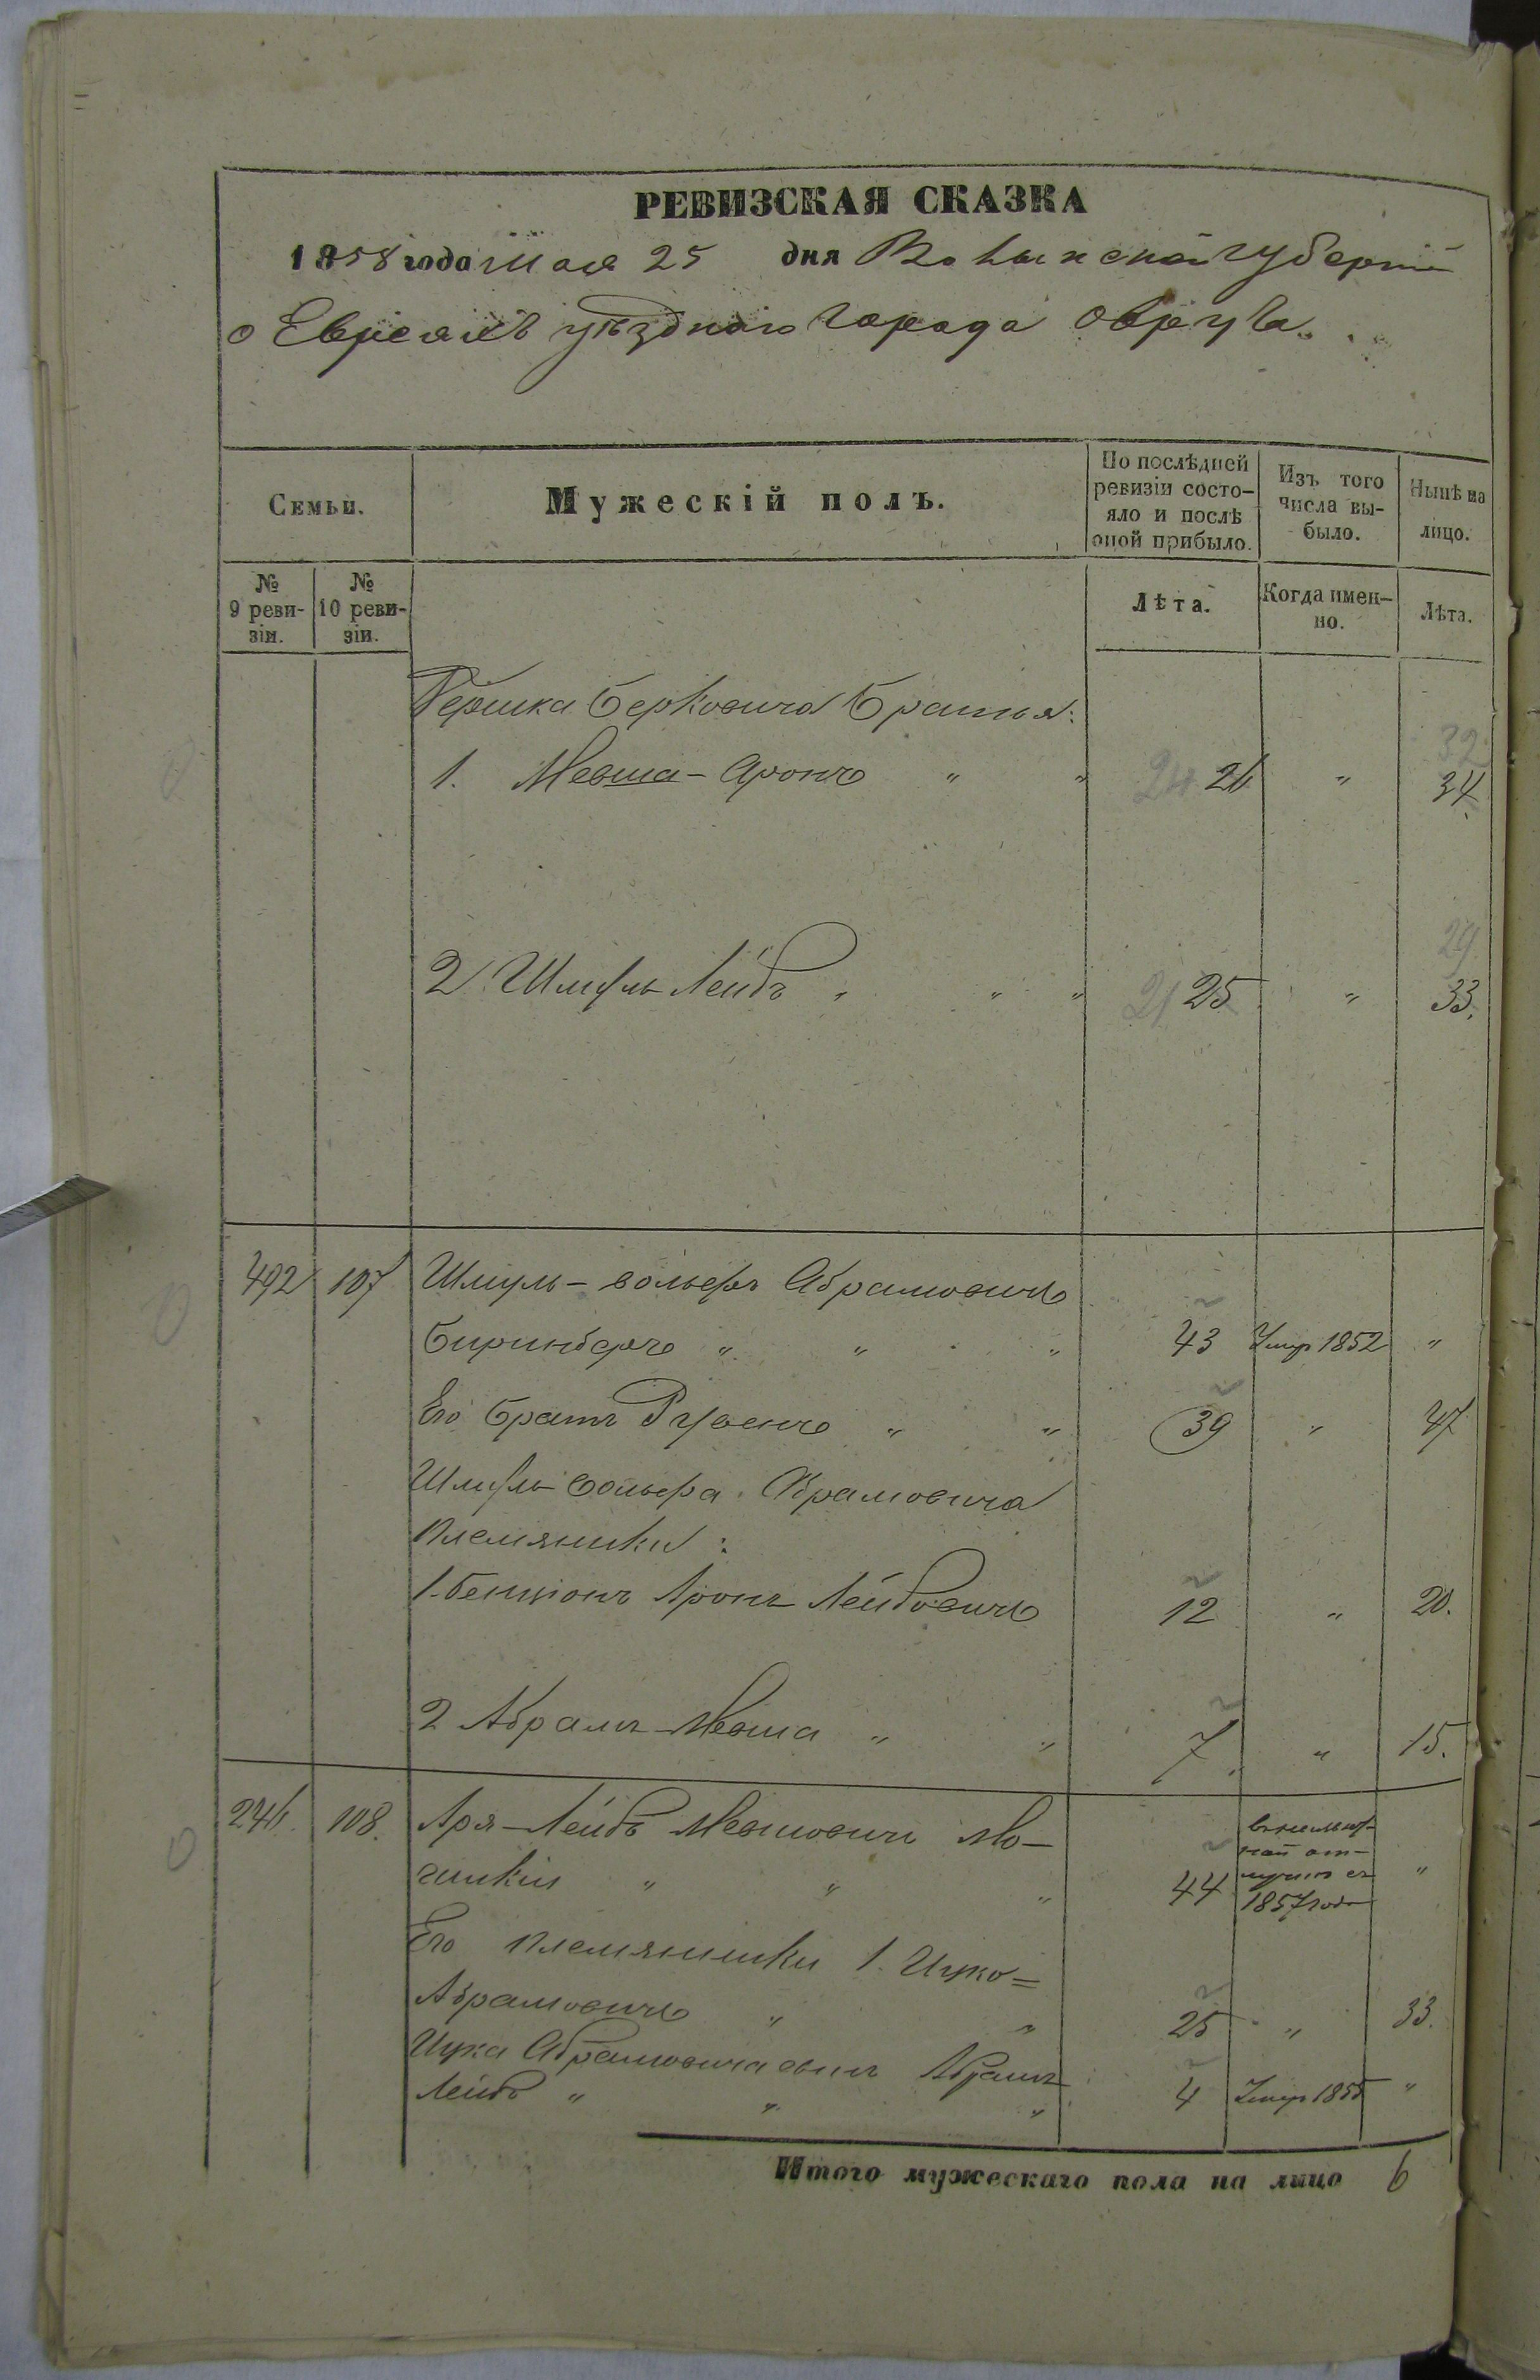 РЕВИЗСКАЯ СКАЗКА
1858 года Мая 25 дня Волынской губерніи
о Евреяхъ уѣзднаго города Овруча.
Семьи.
Мужескій полъ.
По послѣдней ревизіи состояло и послѣ оной прибыло.
Изъ того числа выбыло.
Нынѣ на лицо.
№ 9 ревизіи.
№ 10 ревизіи.
Лѣта.
Когда именно.
Лѣта.
Гершка Берковича Братья:
32
1. Мовша-Аронъ " " 24 26 " 34.
29
2. Шмуль Лейбъ " " " 21 25 " 33.
492 107 Шмуль-вольфъ Абрамовичъ
" " " 43 Умер 1852 "
Его братъ Рувенъ " " 39 " 47
Шмуль вольфа Абрамовича
Племянники:
1. Бенціонъ Аронъ Лейбовичъ 12 " 20.
2 Абрамъ-Мовша " " 7. " 15.
108. Аря-Лейбъ Мовшовичъ
" " " 44 1857 года "
Его племянники 1. Ицко=
Абрамовичъ " " 25 " 33.
Ицка Абрамовича сынъ Абрамъ
Лейбъ " " " 4 Умер 1855 "
Итого мужескаго пола на лицо 6